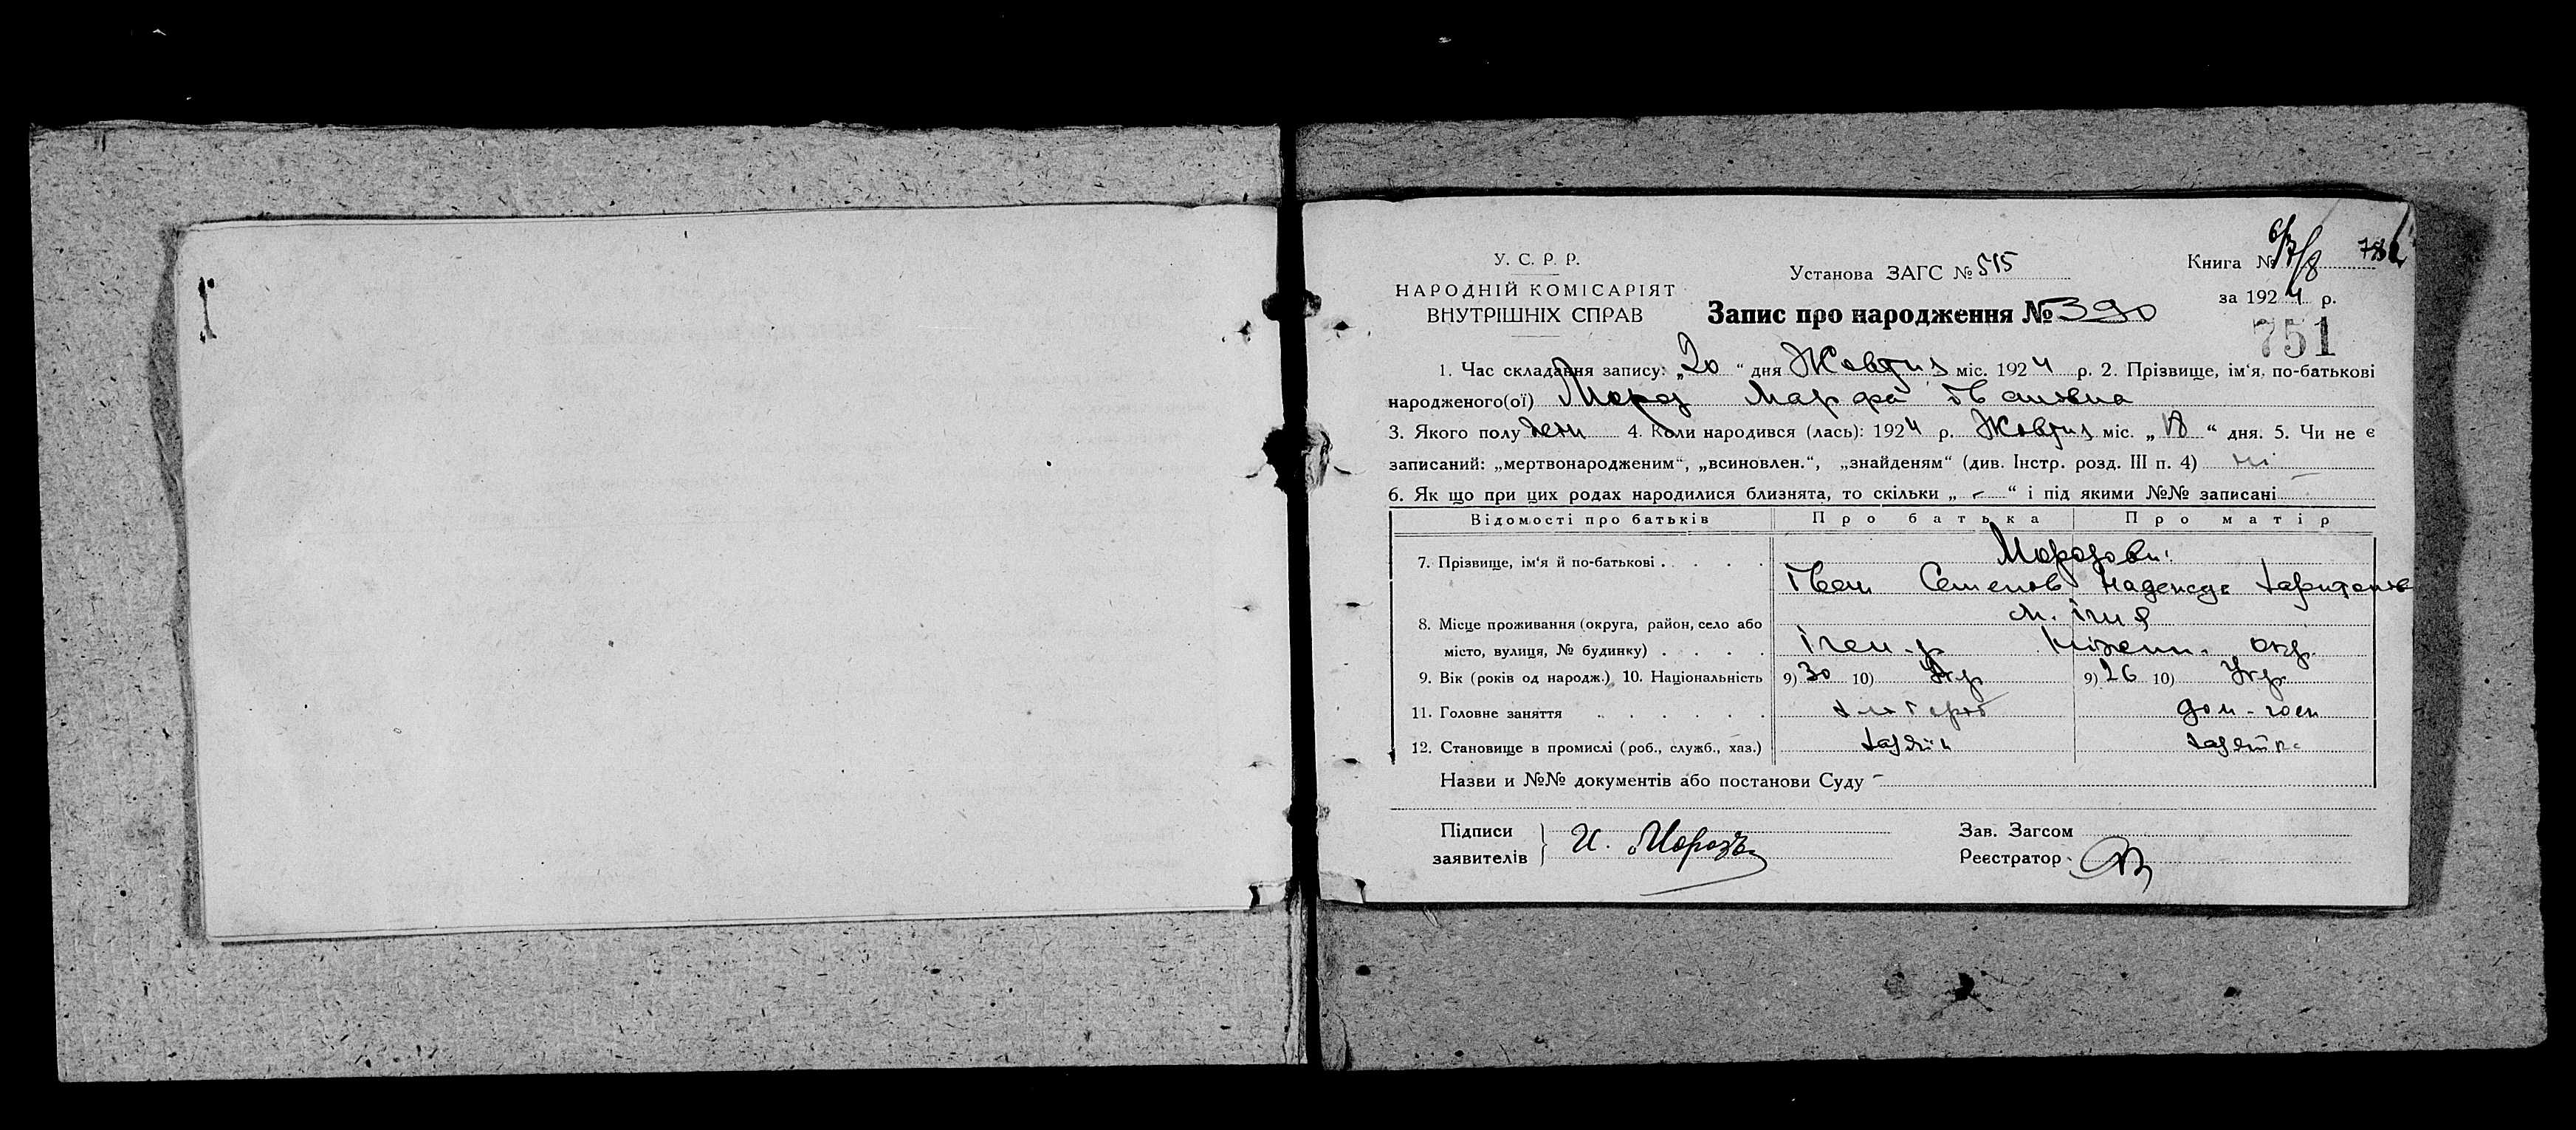 У. С. Р. Р.
НАРОДНІЙ КОМІСАРІЯТ
ВНУТРІШНІХ СПРАВ
Установа ЗАГС № 515
Книга №
за 1924 р.
Запис про народження № 390
751
1. Час складання запису: „20“ дня Жовтня міс. 1924 р. 2. Прізвище, ім‘я, по-батькові
народженого(ої) Мороз Марфа Ивановна
3. Якого полу жен 4. Коли народився (лась): 1924 р. Жовтня міс. „18“ дня. 5. Чи не є
записаний: „мертвонародженим“, „всиновлен.“, „знайденям“ (див. Інстр. розд. III п. 4) ні
6. Як що при цих родах народилися близнята, то скільки „-“ і під якими №№ записані
Відомості про батьків Про батька Про матір
7. Прізвище, ім‘я й по-батькові Морозови
Иван Семенов Надежда Харитонов
8. Місце проживання (округа, район, село або м. Ічня
місто, вулиця, № будинку) Ічен. р Ніженн. окр.
9. Вік (років од народж.) 10. Національність 9) 30 10) Укр 9) 26 10) Укр
11. Головне заняття хлібороб дом-госп
12. Становище в промислі (роб., служб., хаз.) хазяїн хазяйка
Назви и №№ документів або постанови Суду -
Підписи
заявителів И. Морозъ
Зав. Загсом
Реєстратор